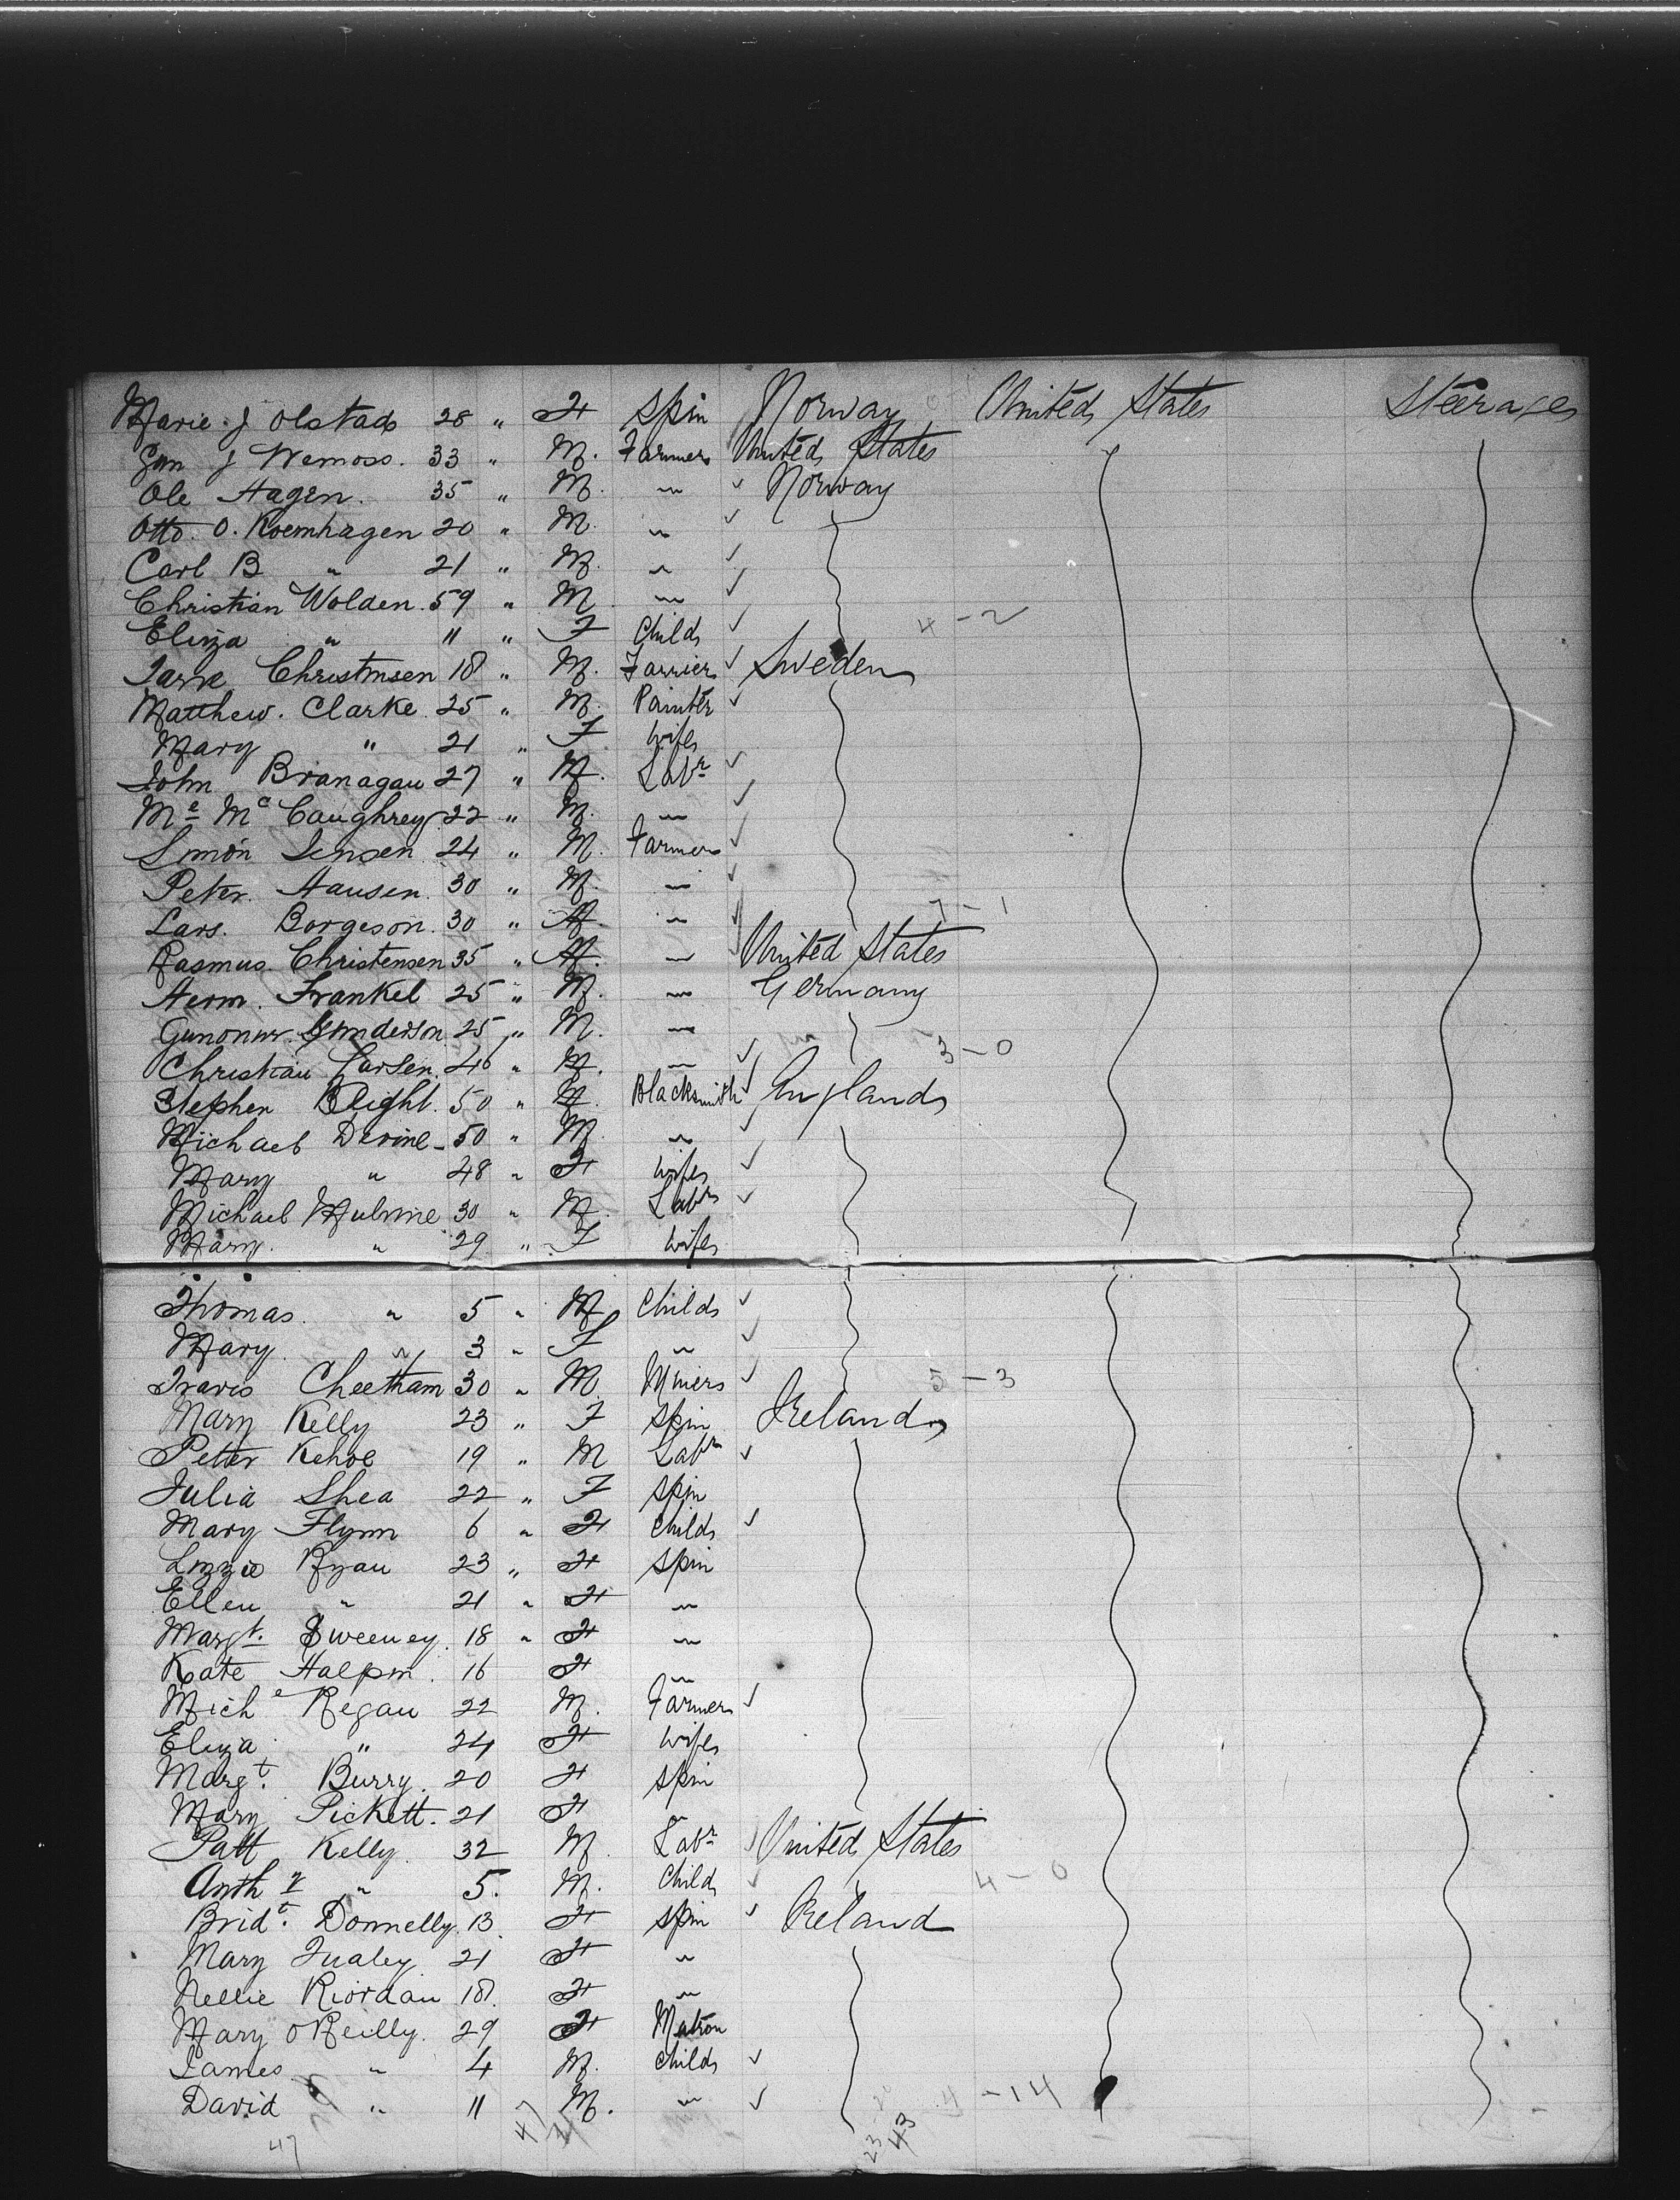 Marie J Olstad 28 " F Spin Norway United States Steerage
J Wemoss. 33 " M. Farmer United States
Ole Hagen. 35 " M. " Norway
Otto O. Koemhagen 20 " M. "
Carl B " 21 " M. "
Christian Wolden. 59 " M "
Eliza " 11 " F Child 4-2
Christensen 18 " M. Farrier Sweden
Matthew. Clarke. 25 " M. Painter
Mary " 21 " F wife
John Branagan 27 " M. Labr
Mc Caughrey. 22 " M. "
Simon Jensen 24 " M. Farmer
Peter. Hausen. 30 " M. "
Lars. Borgeson. 30 " M. " 7-1
Rasmus. Christensen 35 " M. " United States
Herm. Frankel 25 " M. " Germany
Gunderson 25 " M. "
Christian Larsen. 46 " M. " 3-0
Stephen Blight. 50 " M. Blacksmith England
Michael Devine - 50 " M. "
Mary " 48 " F wife
Michael Mulvine 30 " M Labr
Mary. " 29 " F wife
Thomas. " 5 " M Child
Mary. " 3 " F "
Travis Cheetham 30 " M. Miner 5-3
Mary Kelly 23 " F Spin Ireland
Peter Kehoe 19 " M Labr
Julia Shea 22 " F Spin
Mary Flynn 6 " F Child
Lizzie Ryan 23 " F Spin
Ellen " 21 " F "
Margt. Sweeney. 18 " F "
Kate Halpin. 16 F "
Miche Regan 22 M. Farmer
Eliza " 24 F wife
Margt. Burry. 20 F Spin
Mary Pickett. 21 F "
Patt Kelly. 32 M. Labr United States
Anthy " 5. M. Child 4-0
Bridt. Donnelly. 13 F Spin Ireland
Mary 21 F "
Nellie Riordan 18. F "
Mary O Reilly. 29 F Matron
James " 4 M. Child
David " 11 M. " 4-14
47 47 23 43